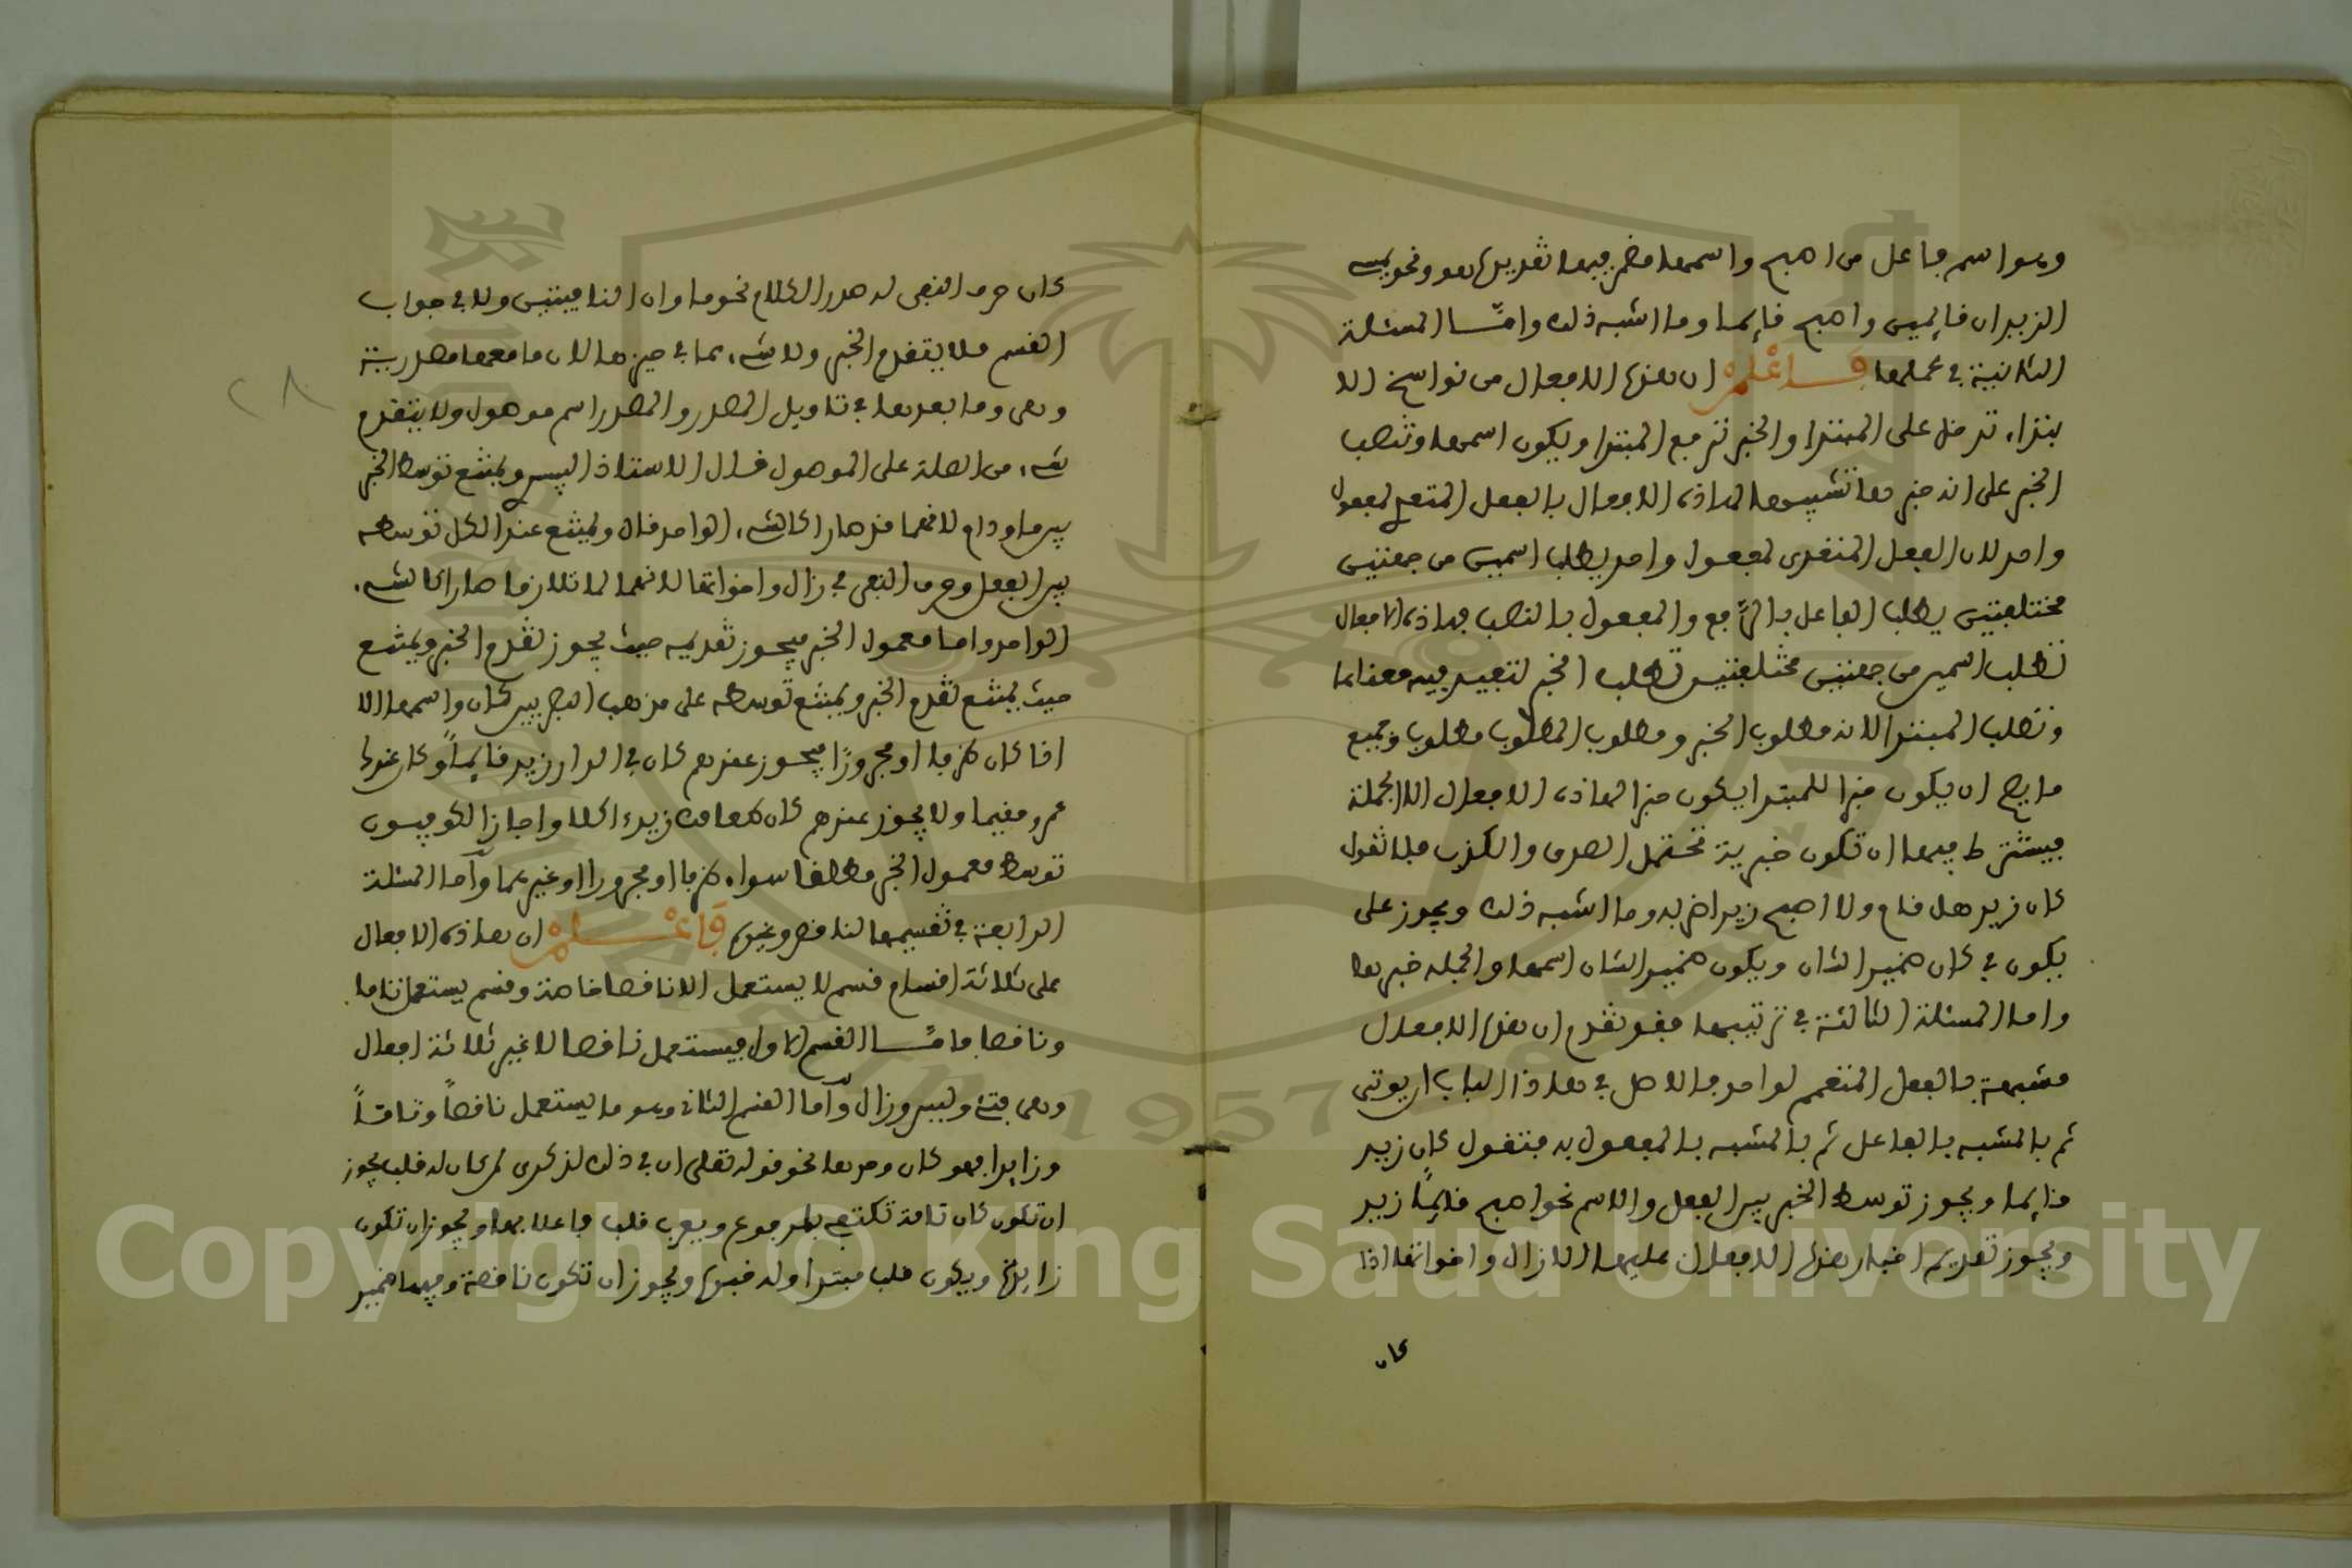 وهوا اسم فاعل من اصبح واسمها مضمر فيها تقديره هو ونحو يمسى
الزيدان قايمين واصبح قايما وما اشبه ذلك وامّا المسئلة
الثانية في عملها فاعلم ان هذه الافعال من نواسخ الا
بتداء تدخل على المبتدا والخبر ترفع المبتدا ويكون اسمها وتنصب
الخبر على انه خبرها تشبيها لهاذه الافعال بالفعل المتعدى لمفعول
واحد لان الفعل المتعدى لمفعول واحد يطلب اسمين من جهتين
مختلفتين يطلب الفاعل بالرّفع والمفعول بالنصب فهاذه الافعال
تطلب اسمين من جهتين مختلفتين تطلب الخبر لتفيد فيه معناها
وتطلب المبتدا لانه مطلوب الخبر ومطلوب المطلوب مطلوب وجميع
ما يصح ان يكون خبرا للمبتدا يكون خبرا لهاذه الافعال الا الجملة
فيشترط فيها ان تكون خبرية تحتمل الصدق والكذب فلا تقول
كان زيد هل قام ولا اصبح زيد اضربه وما اشبه ذلك ويجوز على
يكون في كان ضمير الشان ويكون ضمير الشان اسمها والجملة خبرها
واما المسئلة الثالثة في ترتيبها فقد تقدم ان هذه الافعال
مشبهة بالفعل المتعدي لواحد فالاصل في هاذا الباب ان يوتى
ثم بالمشبه بالفاعل ثم بالمشبه بالمفعول به فتقول كان زيد
قايما ويجوز توسط الخبر بين الفعل والاسم نحو اصبح قايمًا زيد
ويجوز تقديم اخبار هذه الافعال عليها الا زال واخواتها اذا
كان
كان حرف النفى له صدر الكلام نحو ما وان النافيتين ولا في جواب
القسم فلا يتقدم الخبر ولا شىء مما في حيزها لان ما معها مصدرية
وهى وما بعدها في تاويل المصدر والمصدر اسم موصول ولا يتقدم
شىء من الصلة على الموصول قال الاستاذ ويمتنع توسط الخبر
بين ما ودام لانهما قد صارا كالشىء الواحد قال ويمتنع عند الكل توسطه
بين الفعل وحرف النفى في زال واخواتها لانهما لما تلازما صارا كالشىء
الواحد واما معمول الخبر فيجوز تقديمه حيث يجوز تقدم الخبر ويمتنع
حيث يمتنع تقدم الخبر ويمتنع توسطه على مذهب البصريين بين كان واسمها الا
اذا كان ظرفا او مجرورًا فيجوز عندهم كان في الدار زيد قايماً وكان عندك
عمرو مقيما ولا يجوز عندهم كان طعامك زيد ءاكلا واجاز الكوفيون
توسط معمول الخبر مطلقا سواء ظرفا او مجرورا او غيرهما وأما المسئلة
الرابعة في تقسيمها لناقص وغيره فاعلم ان هاذه الافعال
على ثلاثة اقسام قسم لا يستعمل الا ناقصا خاصة وقسم يستعمل تاما
وناقصا فامّا القسم الاول فيستعمل ناقصا لا غير ثلاثة افعال
وهى فتئ وليس وزال وأما القسم الثانى وهو ما يستعمل ناقصاً وتامّاً
وزايدا فهو كان وحدها نحو قوله تعلى ان في ذلك لذكرى لمن كان له قلب يجوز
ان تكون كان تامة تكتفى بالمرفوع ويعرب قلب فاعلا بها ويجوز ان تكون
زايدة ويكون قلب مبتدا وله خبره ويجوز ان تكون ناقصة وفيها ضمير
٢٨
Copyright © King Saud University
1957